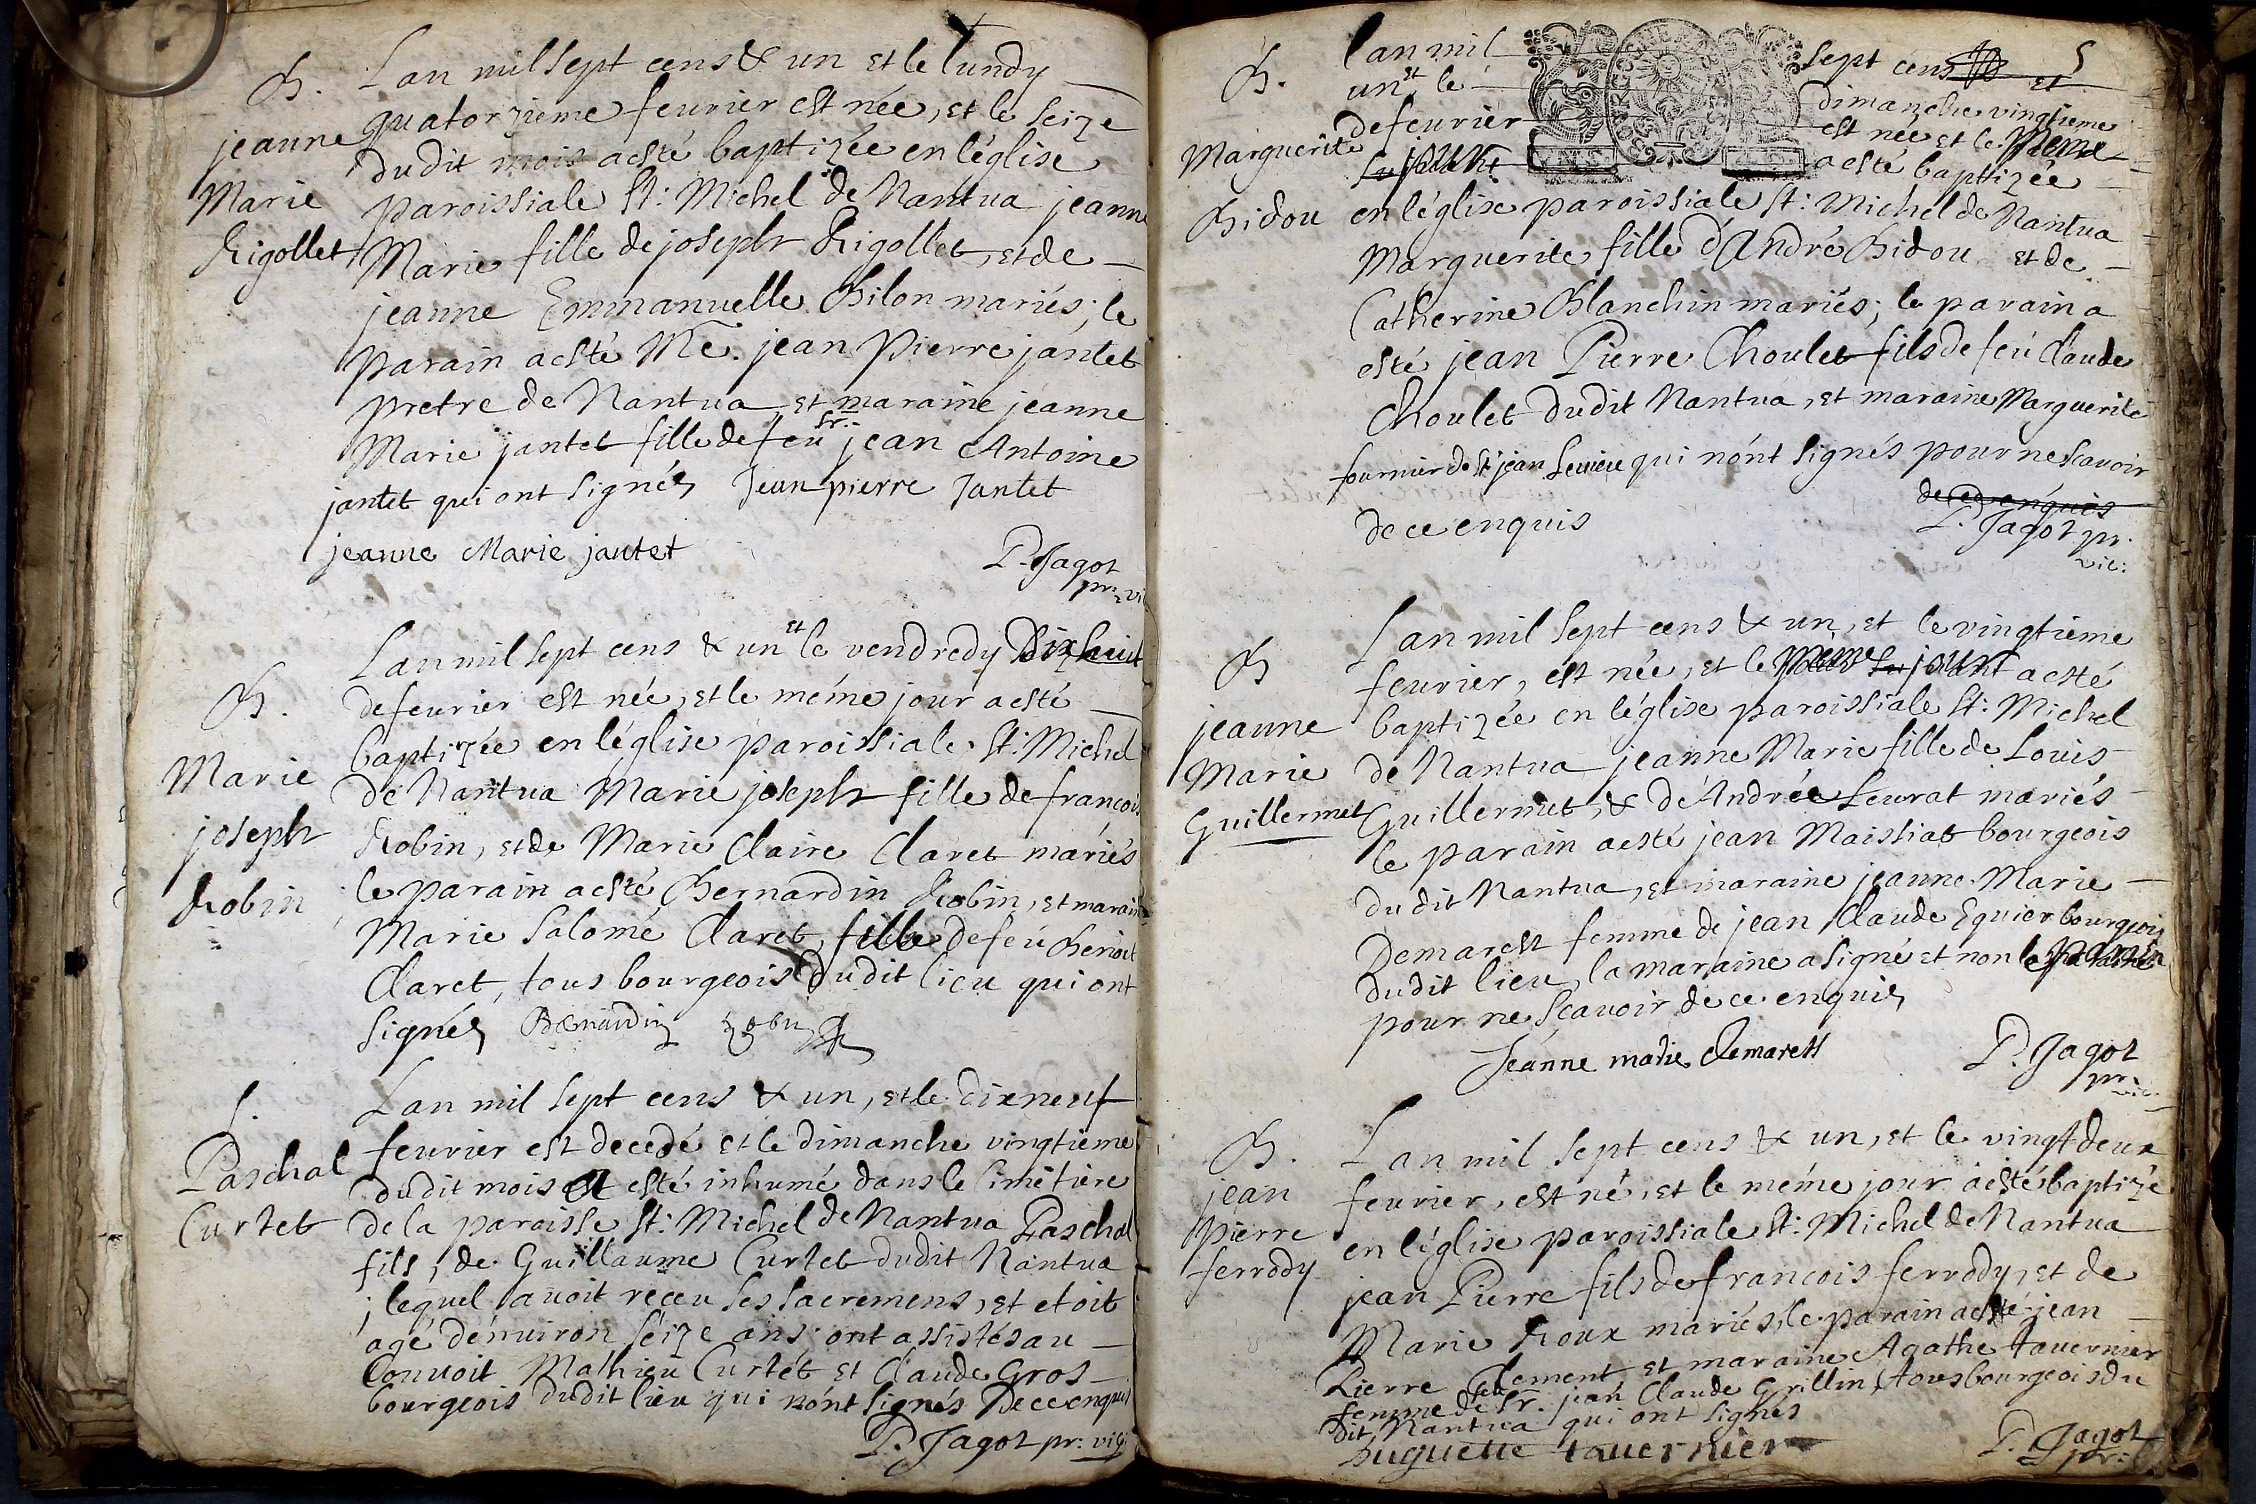 B.
jeanne
Marie
Rigollet
Lan mil sept cens & un et le lundy
quatorzieme feurier est née, et le seize
dudit mois a esté baptizée en léglise
paroissiale St: Michel de Nantua jeanne
Marie fille de joseph Rigollet, et de
jeanne Emmanuelle Bilon mariés; le
parain a esté Me. jean Pierre jantet
pretre de Nantua, et maraine jeanne
Marie jantet fille de feu Sr. jean Antoine
jantet qui ont signés Jean pierre Jantet
jeanne Marie jantet
P. Jagot
pr: vi
B.
Marie
joseph
Robin
Lan mil sept cens & un et le vendredy Dixhuit
de feurier est née, et le méme jour a esté
baptizée en léglise paroissiale St: Michel
de Nantua Marie joseph fille de francois
Robin, et de Marie Claire Claret mariés
le parain a esté Bernardin Robin, et marain
Marie Salomé Claret, fille de feu Benoit
Claret, tous bourgeois dudit lieu qui ont
signés Bernardin Robin
S.
Paschal
Curtet
Lan mil sept cens & un, et le dixneuf
feurier est decedé et le dimanche vingtieme
dudit mois a esté inhumé dans le Cimetiere
de la paroisse St: Michel de Nantua Paschal
fils, de Guillaume Curtet dudit Nantua
; lequel auoit receu ses sacremens, et etoit
agé dénuiron séize ans ont assistés au
Conuoit Mathieu Curtét et Claude Gros
bourgeois dudit lieu qui nónt signés De ce enquis
P. Jagot pr: vic:
5
B.
Marguerite
Bidou
lan mil sept cens & et
un et le dimanche vingtieme
de feurier est née et le meme
jour a esté baptizée
en léglise paroissiale St: Michel de Nantua
Marguerite fille dAndré Bidou et de
Catherine Blanchin mariés; le parain a
esté jean Pierre Choulet fils de feu Claude
Choulet dudit Nantua, et maraine Marguerite
fournier de St jean qui nónt signés pour ne scavoir
de ce enquis
de ce enquis
P. Jagot pr.
vic:
B
jeanne
Marie
Guillermet
Lan mil sept cens & un, et le vingtieme
feurier, est née, et le meme jour a esté
baptizée en léglise paroissiale St: Michel
de Nantua jeanne Marie fille de Louis
Guillermet, & dé Andrée Seurat mariés
le parain a esté jean Maissiat bourgeois
dudit Nantua, et maraine jeanne Marie
Demarest femme de jean Claude Equier bourgeois
dudit lieu, la maraine a signé et non le parain
pour ne scavoir de ce enquis
Jeanne marie demarest
P. Jagot
pr:
vic.
B.
jean
Pierre
ferrody
Lan mil sept cens & un, et le vingtdeux
feurier, est né, et le méme jour a esté baptizé
en léglise paroissiale St: Michel de Nantua
jean Pierre fils de francois ferrody, et de
Marie Roux mariés, le parain a esté jean
Pierre Clement, et maraine Agathe tauernier
femme de Sr. jean Claude Grillin, tous bourgeois du
dit Nantua qui ont signés
huguette tauernier
P. Jagot
pr: